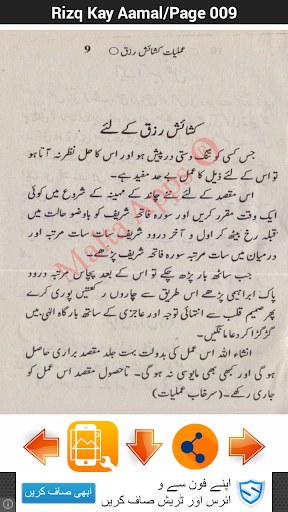 Rizq Kay Aamal/Page 009
عملیات کشائش رزق ○ 9
کشائش رزق کے لئے
جس کسی کو تنگ دستی درپیش ہو اور اس کا حل نظر نہ آتا ہو
تو اس کے لئے ذیل کا عمل بے حد مفید ہے۔
اس مقصد کے لئے نئے چاند کے مہینہ کے شروع میں کوئی
ایک وقت مقرر کریں اور سورہ فاتحہ شریف کو باوضو حالت میں
قبلہ رخ بیٹھ کر اول و آخر درود شریف سات سات مرتبہ اور
درمیان میں سات مرتبہ سورہ فاتحہ شریف پڑھے۔
جب ساتھ بار پڑھ چکے تو اس کے بعد پچاس مرتبہ درود
پاک ابراہیمی پڑھے اس طریق سے چاروں رکعتیں پوری کرے
پھر صمیم قلب سے انتہائی توجہ اور عاجزی کے ساتھ بارگاہ الٰہی میں
گڑگڑا کر دعا مانگیں۔
انشاء اللہ اس عمل کی بدولت بہت جلد مقصد براری حاصل
ہو گی اور کبھی بھی مایوسی نہ ہو گی۔ تاحصول مقصد اس عمل کو
جاری رکھے۔ (سرخاب عملیات)
Malta Apps
اپنے فون سے و
ائرس اور ٹریش صاف کریں
ابھی صاف کریں